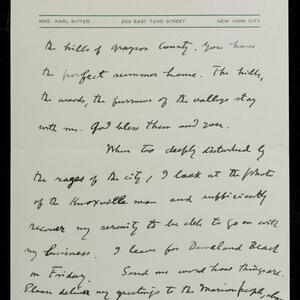 MRS. KARL BITTER 209 EAST 72ND STREET NEW YORK CITY
the hills of Grayson County. You have
the perfect summer home. The hills,
the woods, the furrows of the valleys stay
with me. God bless them and you.
When too deeply disturbed by
the rages of the city, I look at the photo
of the Knoxville man and sufficiently
recover my serenity to be able to go on with
my business. I leave for Beach
on Friday. Send me word how things are.
Please deliver my greetings to the Marion people, also